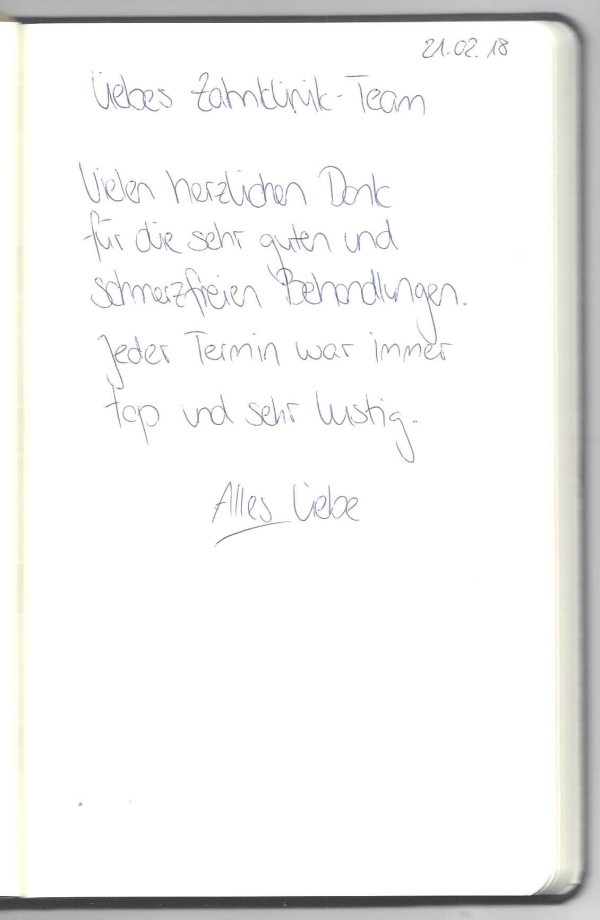 21.02.18
Liebes Zahnklinik-Team
Vielen herzlichen Dank
für die sehr guten und
schmerzfreien Behandlungen.
Jeder Termin war immer
top und sehr lustig.
Alles Liebe